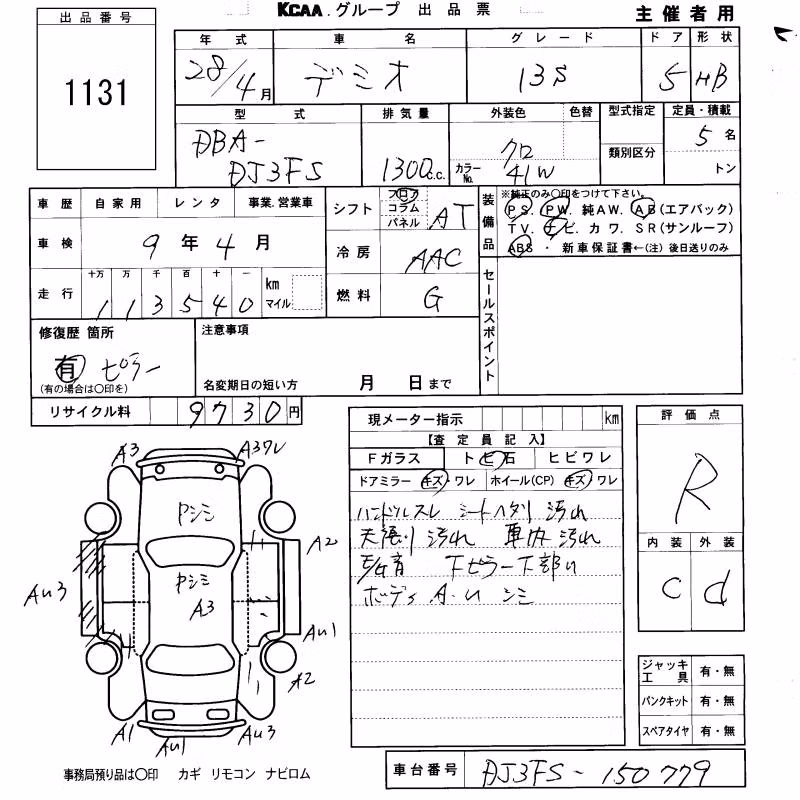 KCAA.グループ 出品票
主催者用
出品番号
1131
年式 車名 グレード ドア 形状
28/4月 デミオ 13S 5 HB
型式 排気量 外装色 色替 型式指定 定員・積載
DBA-
DJ3FS 1300c.c. クロ
カラーNo. 41W 類別区分 5名
トン
車歴 自家用 レンタ 事業.営業車
車検 9年4月
走行 十万 万 千 百 十 一 km マイル
1 1 3 5 4 0
シフト フロア コラム パネル AT
冷房 AAC
燃料 G
装備品
※純正のみ〇印をつけて下さい。
PS. PW. 純AW. AB(エアバック)
TV. ナビ. カワ. SR(サンルーフ)
ABS ・ 新車保証書←(注) 後日送りのみ
セールスポイント
修復歴 箇所
有 ピラー
(有の場合は〇印を)
注意事項
名変期日の短い方 月 日まで
リサイクル料 9730円
現メーター指示 km
【査定員記入】
Fガラス トビ石 ヒビワレ
ドアミラー キズ・ワレ ホイール(CP) キズ・ワレ
ハンドルスレ シートヘタリ 汚れ
天張り汚れ 車内汚れ
下ピラー下部U
ボディ A.U シミ
評価点
R
内装 外装
C d
ジャッキ工具 有・無
パンクキット 有・無
スペアタイヤ 有・無
A3 A3ワレ
Pシミ
A2
Pシミ
A3
AU3
AU1
A2
A1 AU1 AU3
事務局預り品は〇印 カギ リモコン ナビロム
車台番号 DJ3FS-150779